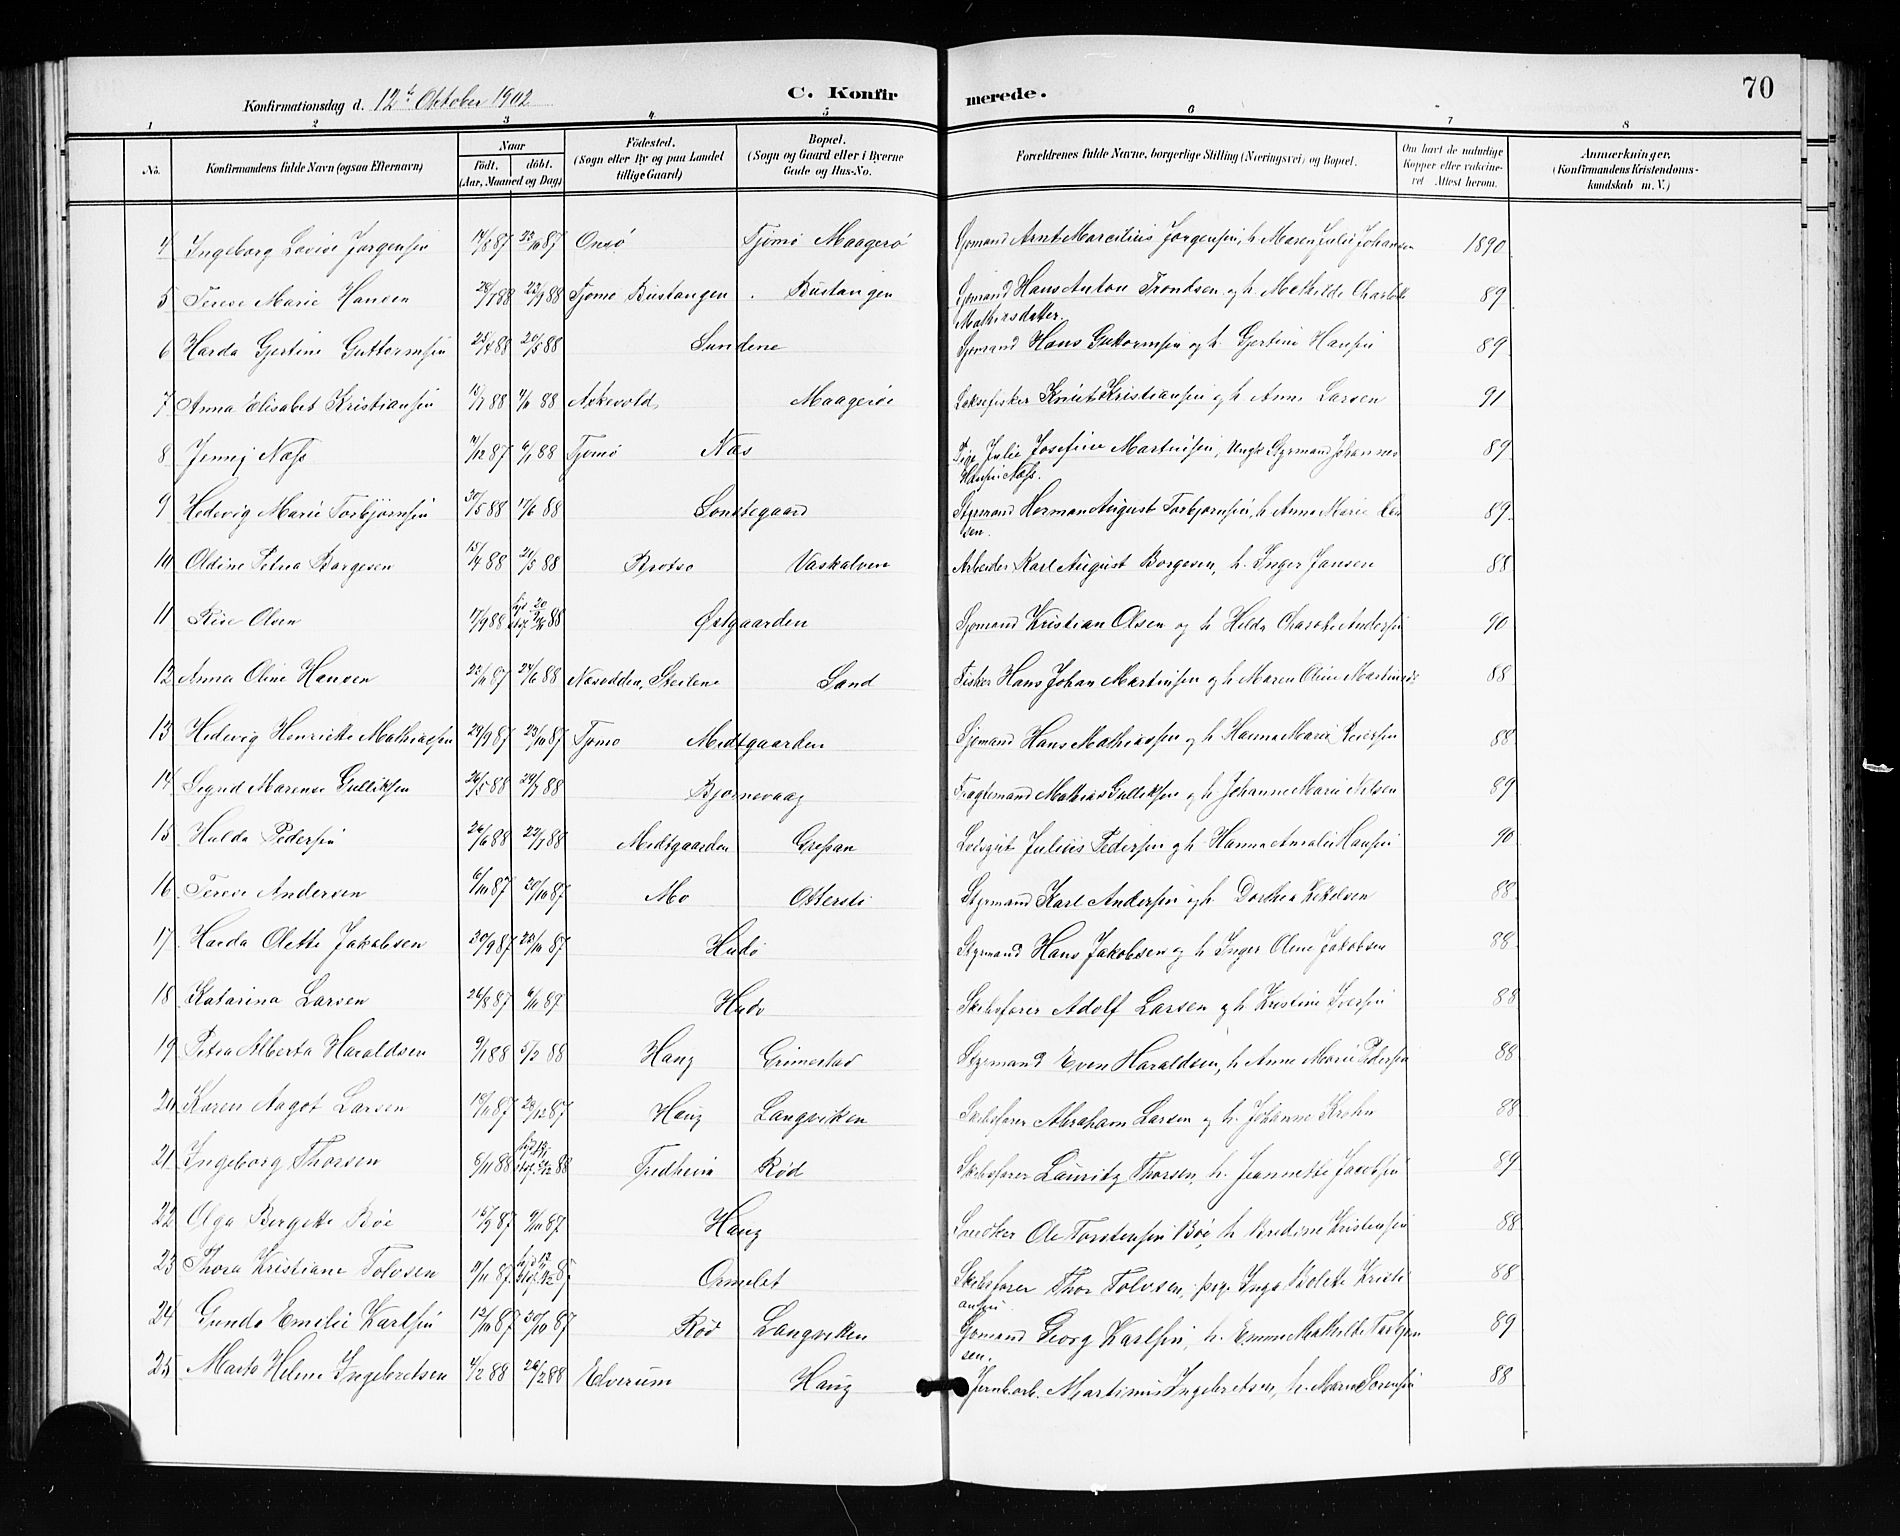 70
Konfirmationsdag d. 12te Oktober 1902 C. Konfirmerede.
1 2 3 4 5 6 7 8
No. Konfirmandens fulde Navn (ogsaa Efternavn) Naar Födt. döbt. (Aar, Maaned og Dag) Födested. (Sogn eller By og paa Landet tillige Gaard) Bopæl. (Sogn og Gaard eller i Byerne Gade og Hus-No. Forældrenes fulde Navne, borgerlige Stilling (Næringsvei) og Bopæl. Om havt de naturlige Kopper eller vakcineret Attest herom. Anmærkninger. (Konfirmandens Kristendomskundskab m. V.)
4 Ingeborg Lovise Jørgensen 14/8 87 23/10 87 Onsø Tjømø Maagerø Sjømand Arnt Marcilius Jørgensen, h. Maren Julie Johansen 1890
5 Terese Marie Hansen 28/7 88 23/9 88 Tjømø Bustangen Bustangen Sjømand Hans Anton Trondsen og h. Mathilde Charlotte
Mathiasdatter. 89
6 Harda Gjertine Guttormsen 25/4 88 20/5 88 Sundene Sjømand Hans Guttormsen og h. Gjertine Hansen 89
7 Anna Elisabet Kristiansen 88 88 Askevold Maagerøe Laksefisker Knut Kristiansen og h. Anne Larsen 91
8 Jenny Næss 11/12 87 6/1 88 Tjømø Næs Pige Julie Josefine Martinsen, Ungk. Styrmand Johannes
Hansen Næss. 89
9 Hedevig Marie Torbjørnsen 30/5 88 17/6 88 Søndregaard Styrmand Herman August Torbjørnsen, h. Anne Marie
89
10 Oldine Petrea Borgesen 15/4 88 21/5 88 Brøtsø Vaskalven Arbeider Karl August Borgesen, h. Inger Jansen 88
11 Olsen 17/9 88 88 Østgaarden Sjømand Kristian Olsen og h. Hilda Charlotte Andersen 90
12 Anna Oline Hansen 87 24/6 88 Næsodden, Steilene Sand Fisker Hans Johan Martinsen og h. Maren Oline Martinsen 88
13 Hedevig Henriette Mathiassen 29/9 87 23/10 87 Tjømø Midtgaarden Sjømand Hans Mathiassen og h. Hanna Marie Pedersen 88
14 Sigrid Marense Gulliksen 26/5 88 29/7 88 Bjørnevaag Fragtemand Mathias Gulliksen og h. Johanne Marie Nilsen 89
15 Hulda Pedersen 26/6 88 22/7 88 Midtgaarden Grepan Julius Pedersen og h. Hanna Amalie Hansen 90
16 Terese Andersen 6/10 87 30/10 87 Mo Otterstí Styrmand Karl Andersen og h. Dorthea Kekelsen 88
17 Harda Olette Jakobsen 30/9 87 23/10 87 Hudø Styrmand Hans Jakobsen og h. Inger Oline Jakobsen 88
18 Katarina Larsen 26/8 87 6/11 87 Hudø Skibsfører Adolf Larsen og h. Kristine Iversen 88
19 Petra Alberta Haraldsen 9/1 88 5/2 88 Haug Grimestad Styrmand Even Haraldsen, h. Anne Marie Pedersen 88
20 Karen Aagot Larsen 87 28/12 87 Haug Langviken Skibsfører Abraham Larsen og h. Johanne Krohn 88
21 Ingeborg Thorsen 8/11 88 88 Fredheim Rød Skibsfører Lauritz Thorsen, h. Jeannette Jacobsen 89
22 Olga Bergette Bøe 87 87 Haug Snedker Ole Torstensen Bøe, h. Bredine Kristensen 88
23 Thora Kristiane Tolvsen 87 87 Ormelet Skibsfører Thor Tolvsen, Inga Violette Kristi
ansen 88
24 Gunda Emilie Karlsen 12/10 87 30/10 87 Rød Langviken Sjømand Georg Karlsen, h. Emma Mathilde Torbjørn
sen. 89
25 Marta Helene Ingebretsen 4/2 88 26/2 88 Elverum Haug Jernb.arb. Martinius Ingebretsen, h. Marie Sørensen 88